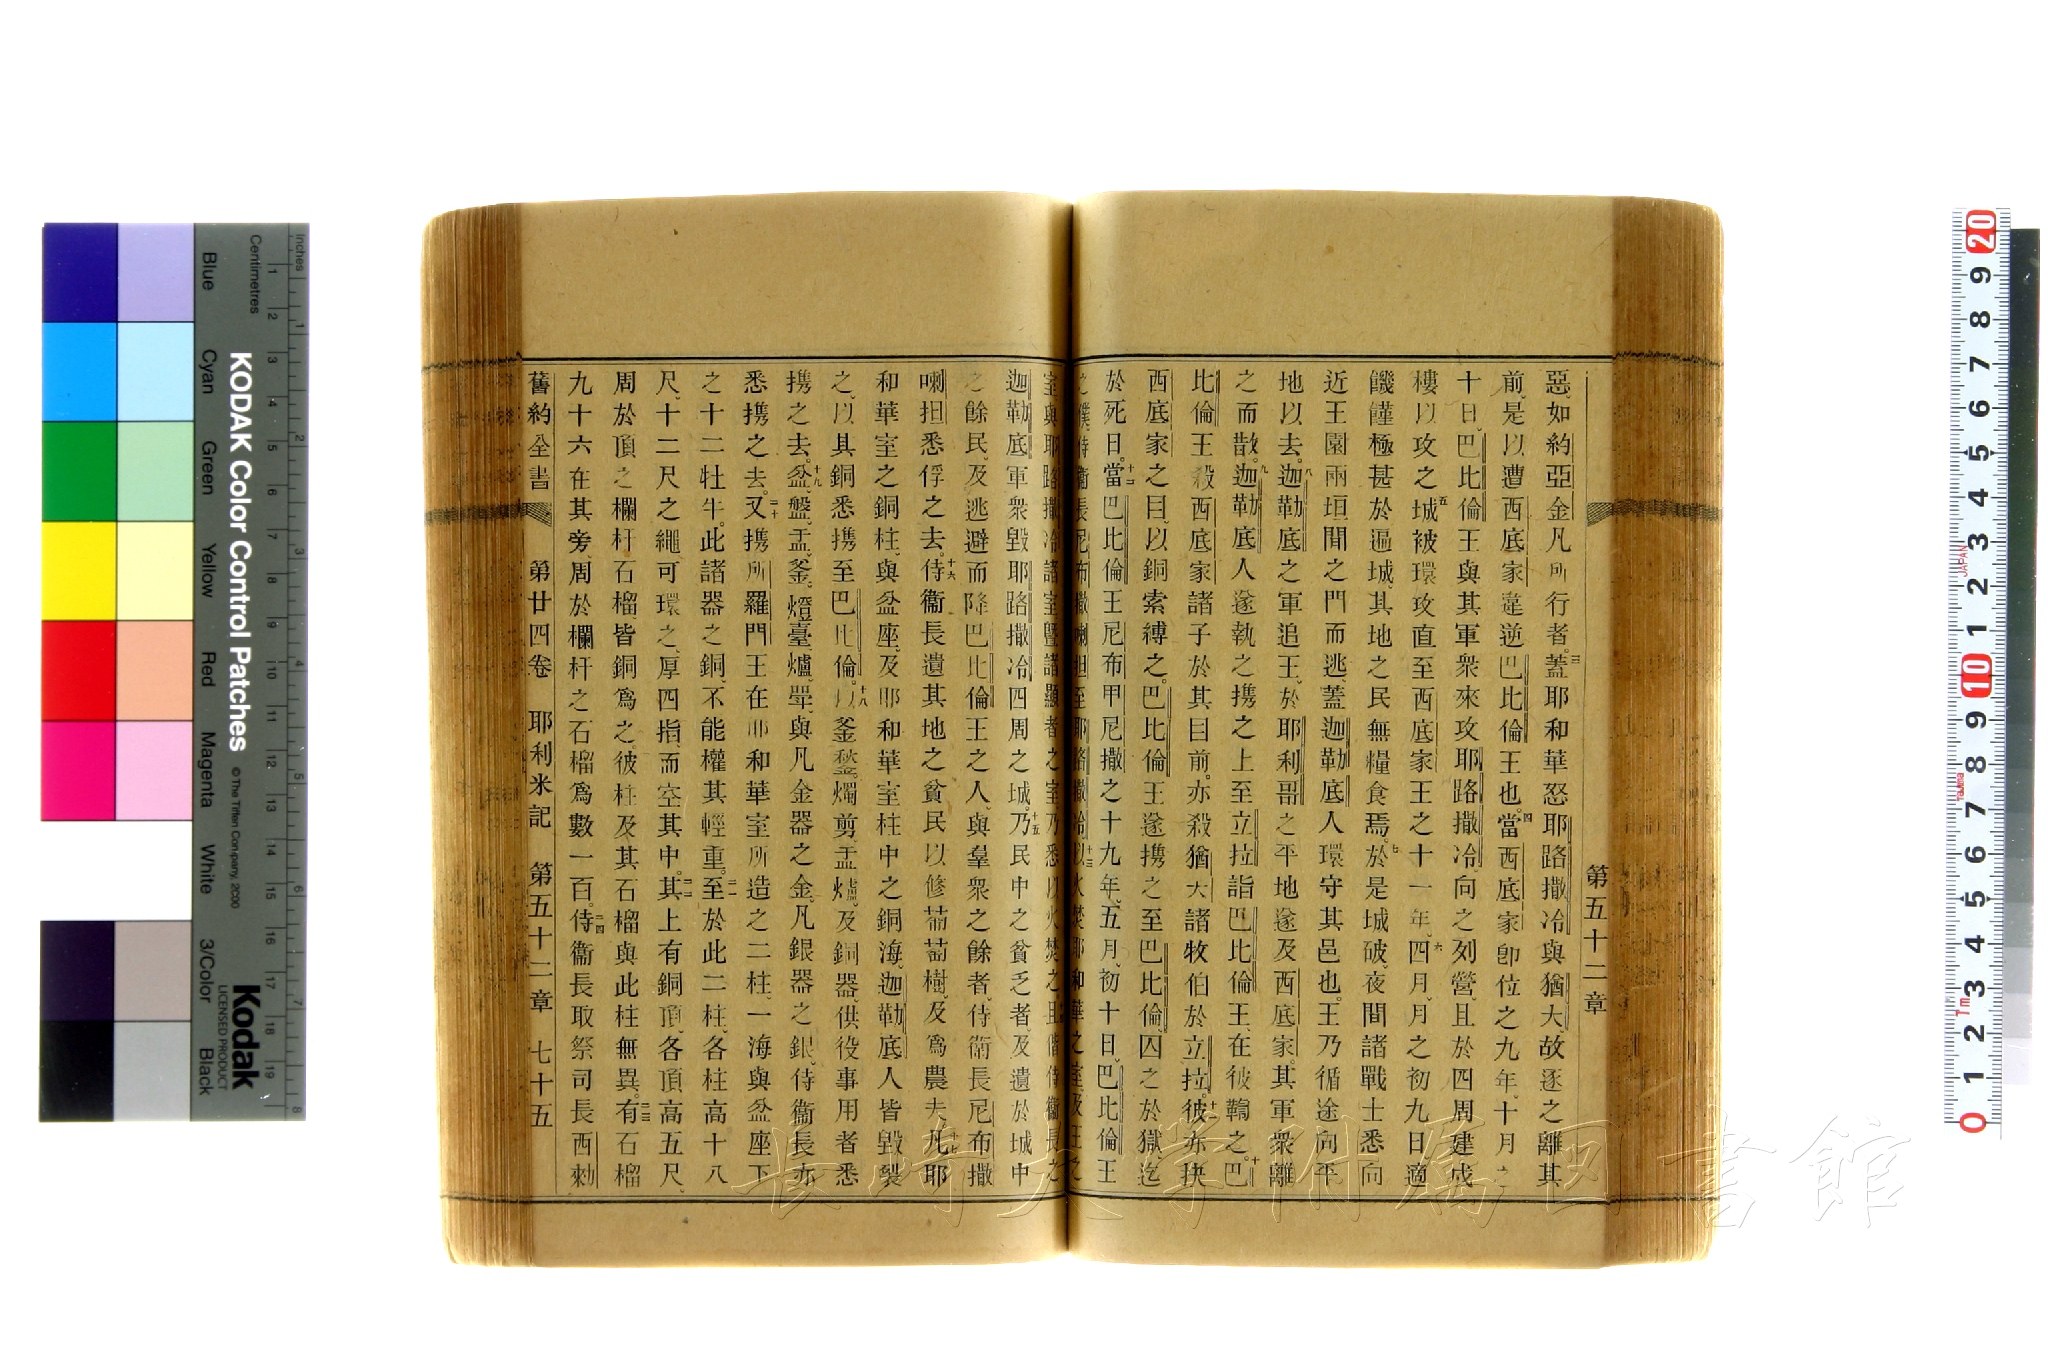 第五十二章
惡、如約亞金凡所行者。三蓋耶和華怒耶路撒冷與猶大、故逐之離其
前、是以遭西底家違逆巴比倫王也。四當西底家卽位之九年、十月之
十日、巴比倫王與其軍衆來攻耶路撒冷、向之列營、且於四周建戍
樓以攻之。五城被環攻直至西底家王之十一年。六四月、月之初九日適
饑饉極甚於遍城、其地之民無糧食焉。七於是城破、夜間諸戰士悉向
近王園兩垣間之門而逃、蓋迦勒底人環守其邑也。王乃循途向平
地以去。八迦勒底之軍追王、於耶利哥之平地遂及西底家。其軍衆離
之而散。九迦勒底人遂執之、攜之上至立拉詣巴比倫王、在彼鞫之。十巴
比倫王殺西底家諸子於其目前、亦殺猶大諸牧伯於立拉。十一彼亦抉
西底家之目、以銅索縛之。巴比倫王遂攜之至巴比倫、囚之於獄、迄
於死日。十二當巴比倫王尼布甲尼撒之十九年、五月、初十日、巴比倫王
之僕侍衞長尼布撒喇担至耶路撒冷。十三以火焚耶和華之室、及王之
室與耶路撒冷諸室、曁諸顯者之室、乃悉以火焚之。且偕侍衞長之
迦勒底軍衆毀耶路撒冷四周之城。十五乃民中之貧乏者、及遺於城中
之餘民、及逃避而降巴比倫王之人、與羣衆之餘者、侍衞長尼布撒
喇担悉俘之去。十六侍衞長遺其地之貧民以修葡萄樹、及爲農夫。十七凡耶
和華室之銅柱、與盆座、及耶和華室柱中之銅海、迦勒底人皆毀裂
之、以其銅悉攜至巴比倫。十八以釜、鍫、燭剪、盂、爐、及銅器、供役事用者悉
攜之去。十九盆、盤、盂、釜、燈臺、爐、斝、與凡金器之金、凡銀器之銀、侍衞長亦
悉攜之去。二十又攜所羅門王在耶和華室所造之二柱、一海與盆座下
之十二牡牛。此諸器之銅、不能權其輕重。二一至於此二柱、各柱高十八
尺、十二尺之繩可環之、厚四指、而空其中。二二其上有銅頂、各頂高五尺、
周於頂之欄杆石榴、皆銅爲之。彼柱及其石榴與此柱無異。二三有石榴
九十六在其旁、周於欄杆之石榴爲數一百。二四侍衞長取祭司長西勑
舊約全書　第廿四卷　耶利米記　第五十二章　七十五
長崎大学附属図書館
KODAK Color Control Patches
© The Tiffen Company, 2000
Kodak
LICENSED PRODUCT
Inches
Centimetres
Blue
Cyan
Green
Yellow
Red
Magenta
White
3/Color
Black